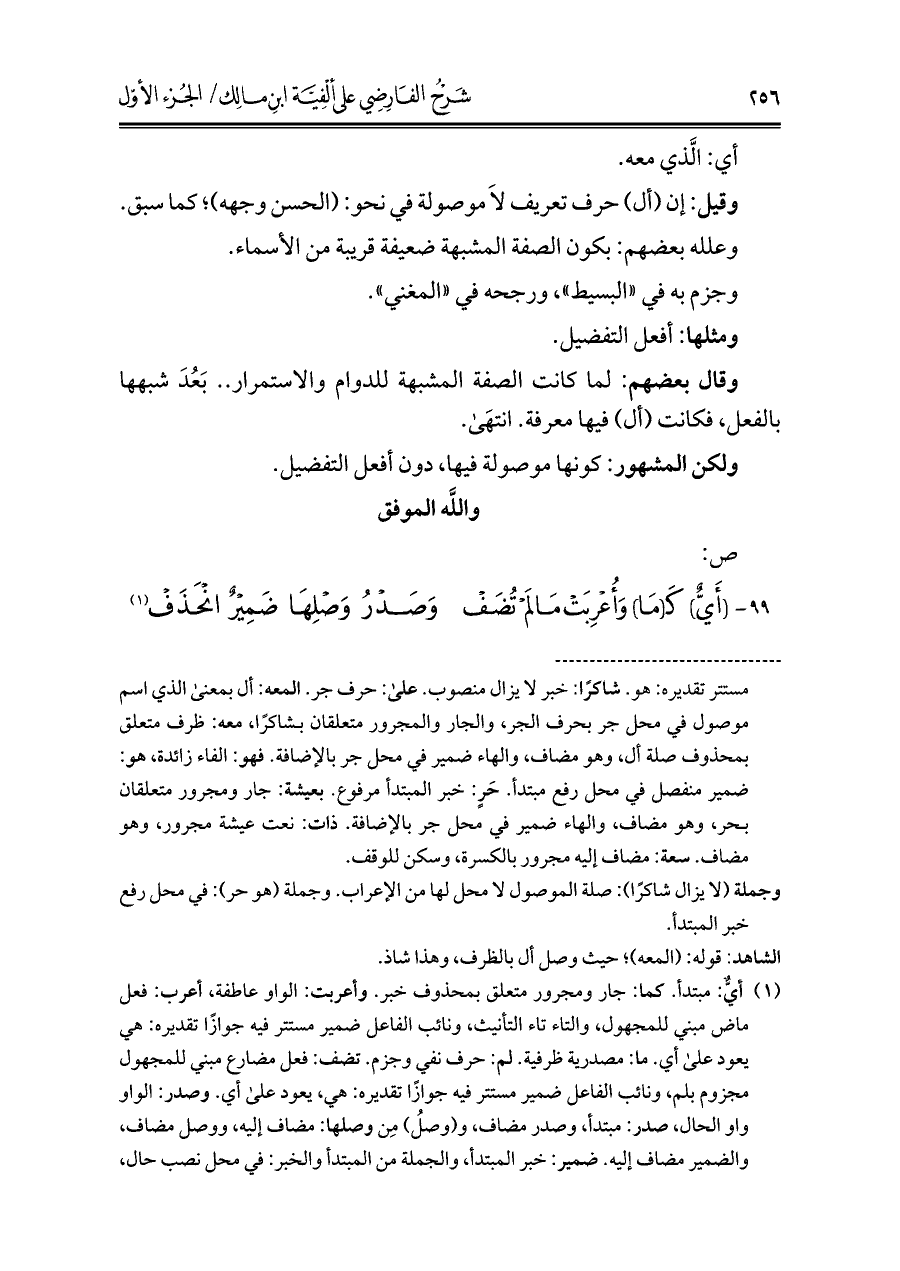 ٢٥٦ شرح الفارضي على ألفية ابن مالك/ الجزء الأول
أي: الَّذي معه.
وقيل: إن (أل) حرف تعريف لاَ موصولة في نحو: (الحسن وجهه)؛ كما سبق.
وعلله بعضهم: بكون الصفة المشبهة ضعيفة قريبة من الأسماء.
وجزم به في «البسيط»، ورجحه في «المغني».
ومثلها: أفعل التفضيل.
وقال بعضهم: لما كانت الصفة المشبهة للدوام والاستمرار.. بَعُدَ شبهها
بالفعل، فكانت (أل) فيها معرفة. انتهَىٰ.
ولكن المشهور: كونها موصولة فيها، دون أفعل التفضيل.
واللَّه الموفق
ص:
٩٩- (أَيٌّ) كَـ(مَا) وَأُعْرِبَتْ مَا لَمْ تُضَفْ وَصَـدْرُ وَصْلِهَا ضَمِيْرٌ انْحَذَفْ(١)
مستتر تقديره: هو. شاكرًا: خبر لا يزال منصوب. علىٰ: حرف جر. المعه: أل بمعنىٰ الذي اسم
موصول في محل جر بحرف الجر، والجار والمجرور متعلقان بـشاكرًا، معه: ظرف متعلق
بمحذوف صلة أل، وهو مضاف، والهاء ضمير في محل جر بالإضافة. فهو: الفاء زائدة، هو:
ضمير منفصل في محل رفع مبتدأ. حَرٍ: خبر المبتدأ مرفوع. بعيشة: جار ومجرور متعلقان
بـحر، وهو مضاف، والهاء ضمير في محل جر بالإضافة. ذات: نعت عيشة مجرور، وهو
مضاف. سعة: مضاف إليه مجرور بالكسرة، وسكن للوقف.
وجملة (لا يزال شاكرًا): صلة الموصول لا محل لها من الإعراب. وجملة (هو حر): في محل رفع
خبر المبتدأ.
الشاهد: قوله: (المعه)؛ حيث وصل أل بالظرف، وهذا شاذ.
(١) أيٌّ: مبتدأ. كما: جار ومجرور متعلق بمحذوف خبر. وأعربت: الواو عاطفة، أعرب: فعل
ماض مبني للمجهول، والتاء تاء التأنيث، ونائب الفاعل ضمير مستتر فيه جوازًا تقديره: هي
يعود علىٰ أي. ما: مصدرية ظرفية. لم: حرف نفي وجزم. تضف: فعل مضارع مبني للمجهول
مجزوم بلم، ونائب الفاعل ضمير مستتر فيه جوازًا تقديره: هي، يعود علىٰ أي. وصدر: الواو
واو الحال، صدر: مبتدأ، وصدر مضاف، و(وصلُ) مِن وصلها: مضاف إليه، ووصل مضاف،
والضمير مضاف إليه. ضمير: خبر المبتدأ، والجملة من المبتدأ والخبر: في محل نصب حال،